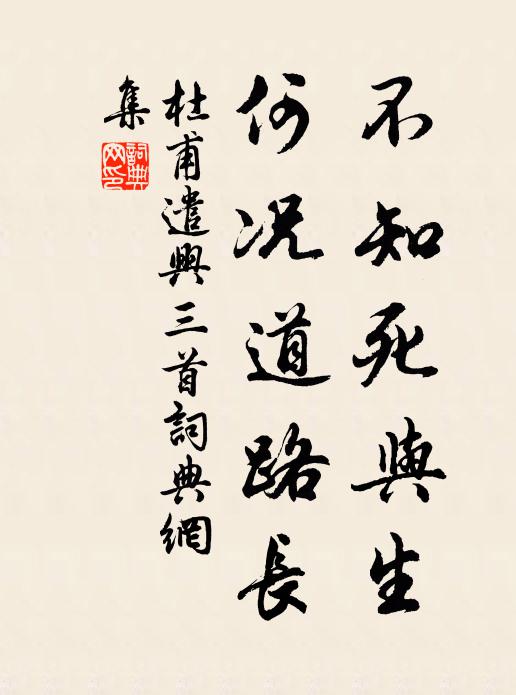 不知死與生
何况道路長
杜甫遣興三首詞典網
集
詞典
网印